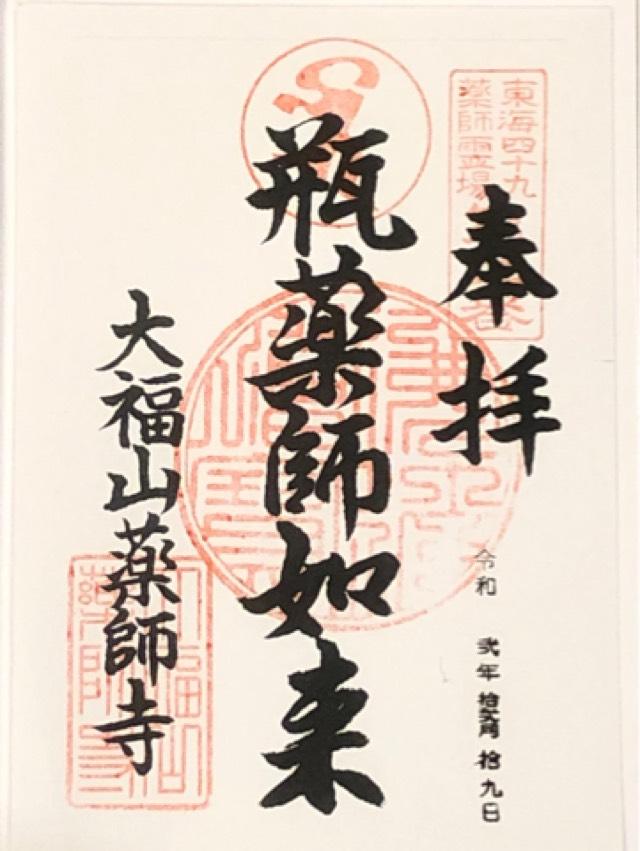 東海四十九
薬師霊場
奉拝
令和 弐年 拾弐月 拾九日
瓶薬師如来
大福山薬師寺